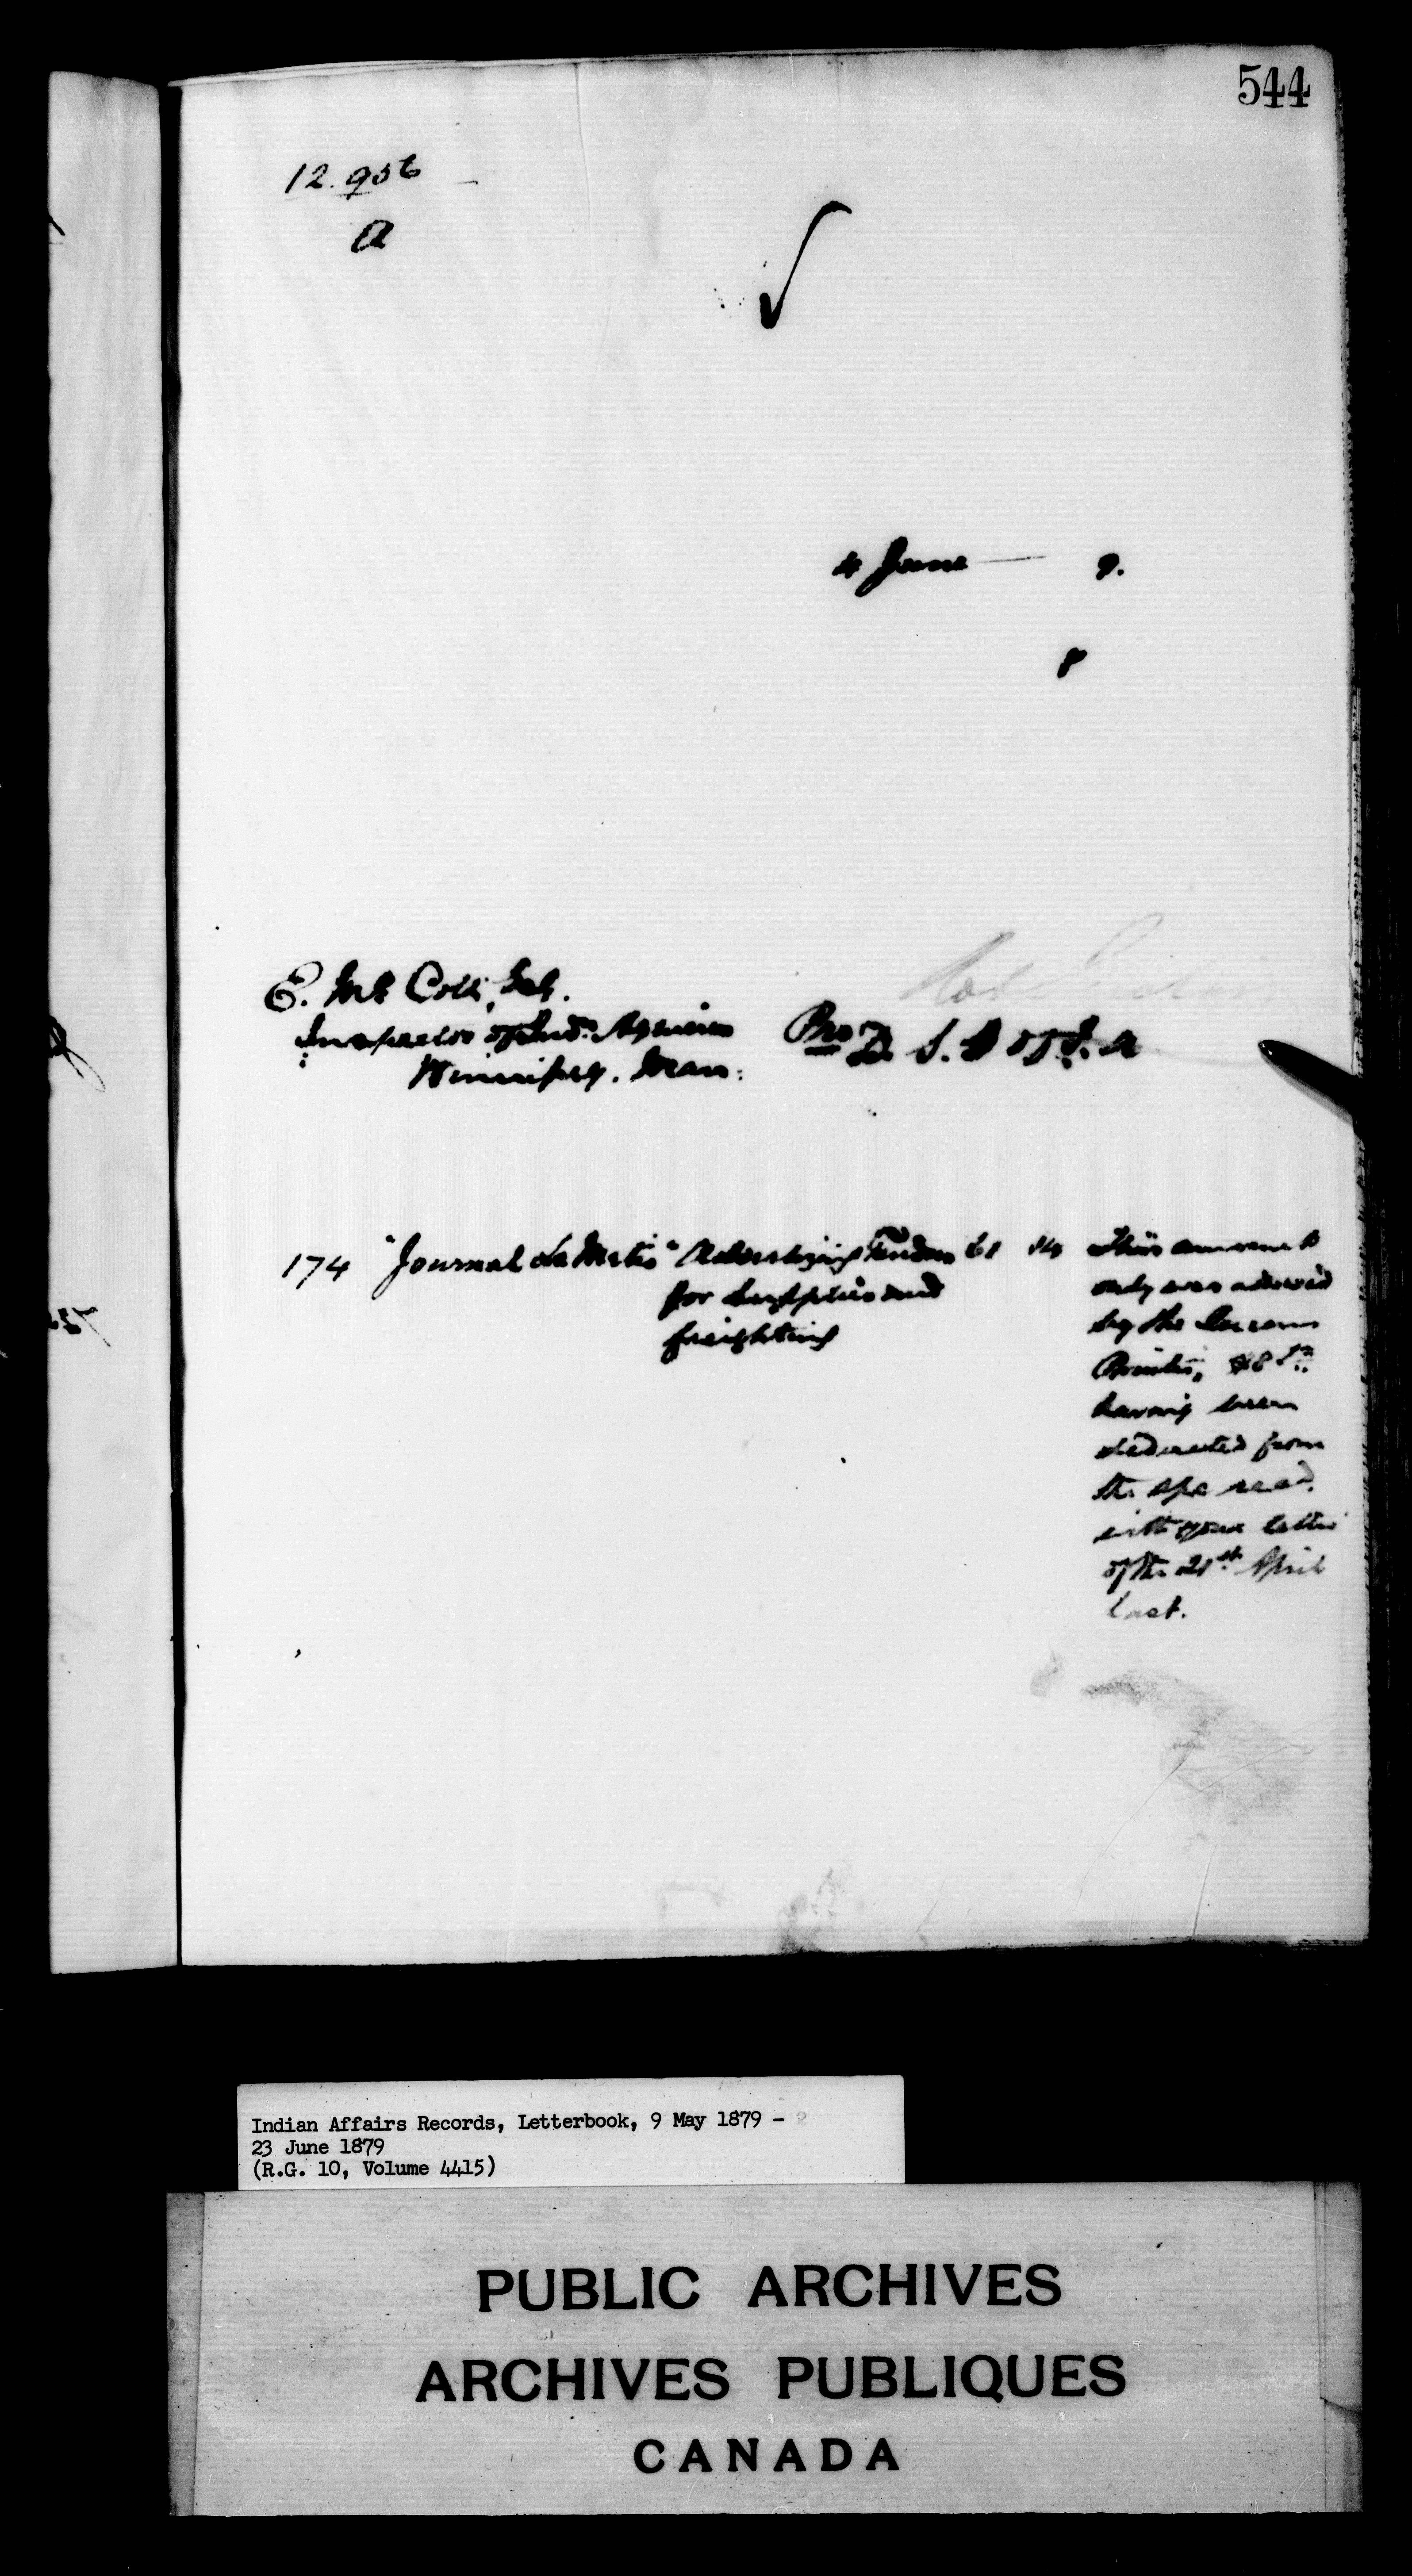 544
12.956
a
4 June — 9.
E. Mc Coll, Esq.
Inspector of Ind. Agencies
Winnipeg. Man:
Pro D. S. G of I. A
174 "Journal Le Metis" Advertising Tenders 61 14
for Supplies and
freighting
This amount
only was allowed
by the Queens
Printer,
having been
deducted from
the a/c recd.
with your letter
of the 21st April
last.
Indian Affairs Records, Letterbook, 9 May 1879 -
23 June 1879
(R.G. 10, Volume 4415)
PUBLIC ARCHIVES
ARCHIVES PUBLIQUES
CANADA